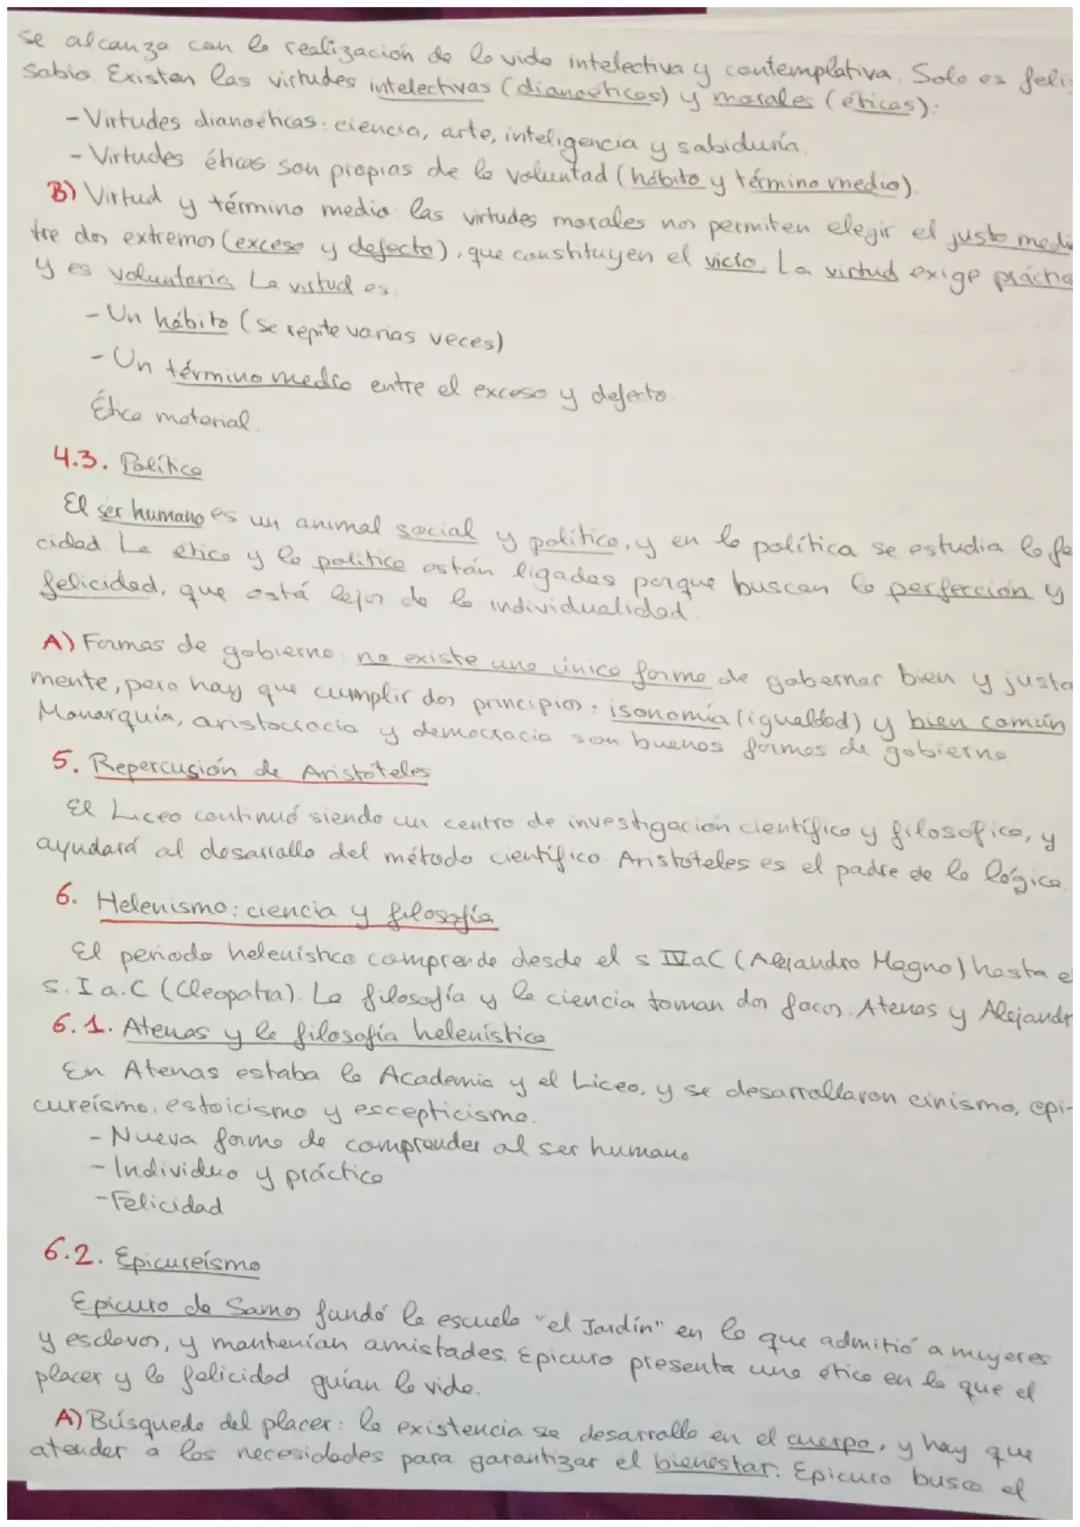 se alcanza con la realización de la vida intelectiva y contemplativa. Solo es feliz
sabio. Existen las virtudes intelectivas (dianoéticas) y morales (éticas):
- Virtudes dianoéticas: ciencia, arte, inteligencia y sabiduría.
- Virtudes éticas son propias de la voluntad (hábito y término medio).
B) Virtud y término medio: las virtudes morales nos permiten elegir el justo medi
tre dos extremos (exceso y defecto), que constituyen el vicio. La virtud exige práctica
y es voluntaria. La virtud es:
- Un hábito (se repite varias veces)
- Un término medio entre el exceso y defecto.
Ética material.
4.3. Política
El ser humano es un animal social y político, y en la política se estudia la fe
cidad. La ética y la política están ligadas porque buscan la perfección y
felicidad, que está lejos de la individualidad.
A) Formas de gobierno: no existe una única forma de gobernar bien y justa
mente, pero hay que cumplir dos principios: isonomía (igualdad) y bien común
Monarquía, aristocracia y democracia son buenas formas de gobierno.
5. Repercusión de Aristóteles
El Liceo continuó siendo un centro de investigación científico y filosófico, y
ayudará al desarrollo del método científico. Aristóteles es el padre de la lógica.
6. Helenismo: ciencia y filosofía
El periodo helenístico comprende desde el s IV aC (Alejandro Magno) hasta e
s. I a.C (Cleopatra). La filosofía y la ciencia toman dos focos: Atenas y Alejandr
6.1. Atenas y la filosofía helenística
En Atenas estaba la Academia y el Liceo, y se desarrollaron cinismo, epi-
cureísmo, estoicismo y escepticismo.
- Nueva forma de comprender al ser humano
- Individuo y práctica
- Felicidad
6.2. Epicureísmo
Epicuro de Samos fundó la escuela "el Jardín" en la que admitió a mujeres
y esclavos, y mantenían amistades. Epicuro presenta una ética en la que el
placer y la felicidad guían la vida.
A) Búsqueda del placer: la existencia se desarrolla en el cuerpo, y hay que
atender a las necesidades para garantizar el bienestar. Epicuro busca el